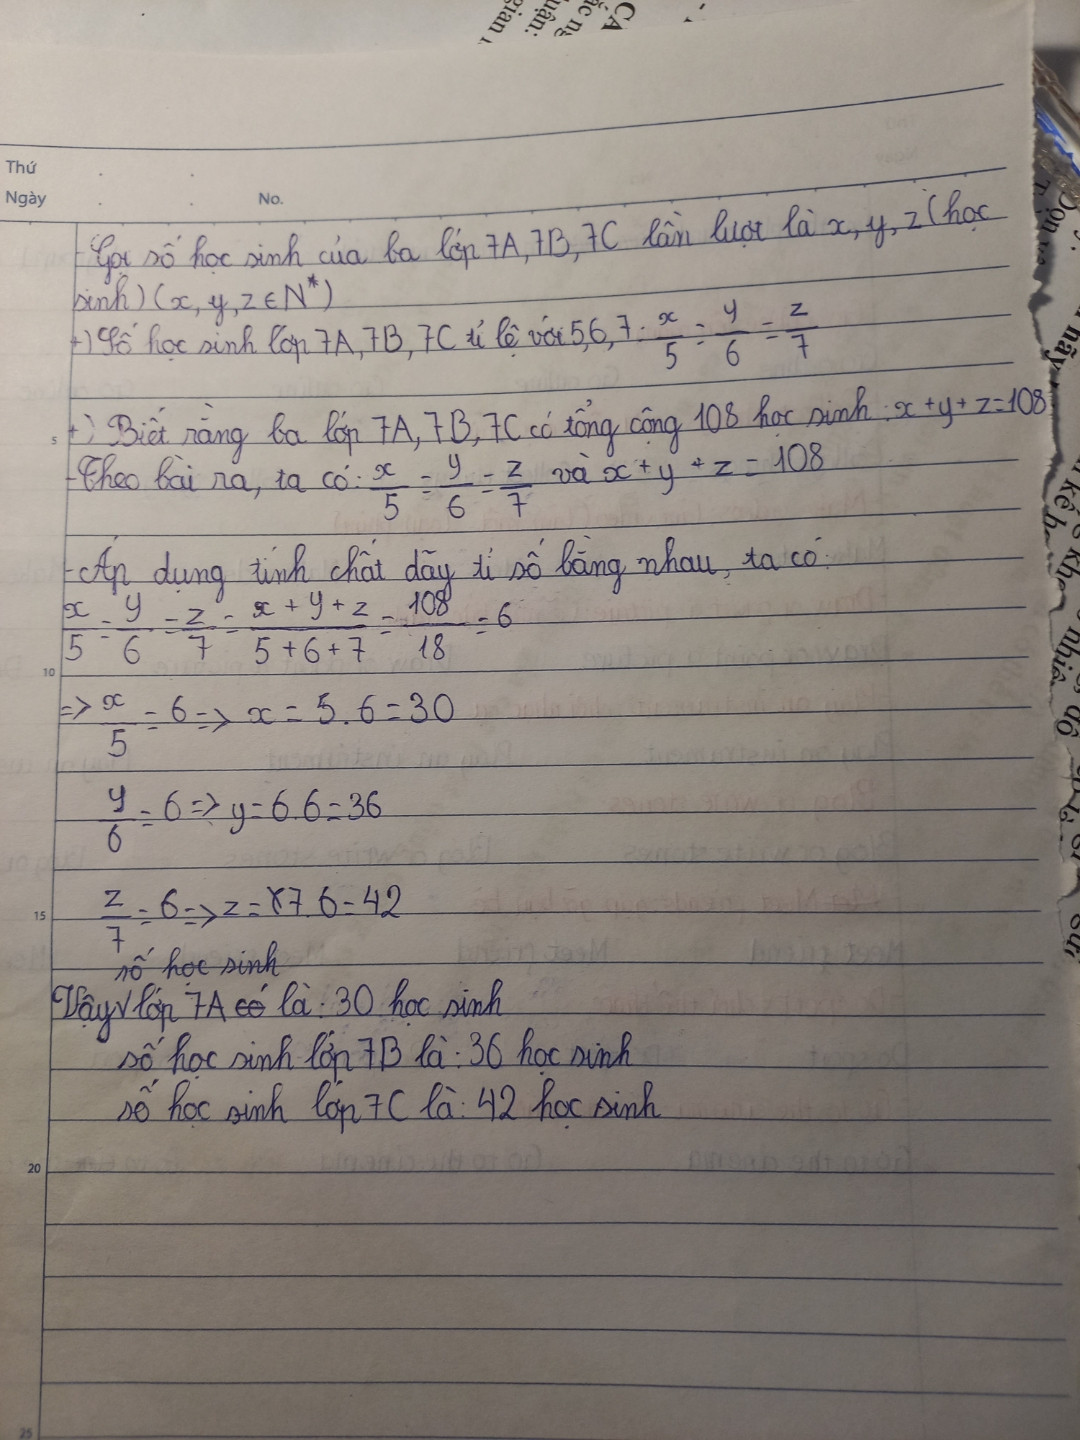 CÁ
Thứ
Ngày
No.
- Gọi số học sinh của ba lớp 7A, 7B, 7C lần lượt là x, y, z (học
sinh) (x, y, z ∈ N*)
+) Số học sinh lớp 7A, 7B, 7C tỉ lệ với 5, 6, 7: x/5 = y/6 = z/7
5
+) Biết rằng ba lớp 7A, 7B, 7C có tổng cộng 108 học sinh: x + y + z = 108
- Theo bài ra, ta có: x/5 = y/6 = z/7 và x + y + z = 108
- Áp dụng tính chất dãy tỉ số bằng nhau, ta có:
x/5 = y/6 = z/7 = (x + y + z)/(5 + 6 + 7) = 108/18 = 6
10
=> x/5 = 6 => x = 5.6 = 30
y/6 = 6 => y = 6.6 = 36
15
z/7 = 6 => z = 7.6 = 42
số học sinh
Vậy√ lớp 7A có là: 30 học sinh
số học sinh lớp 7B là: 36 học sinh
số học sinh lớp 7C là: 42 học sinh
20
25